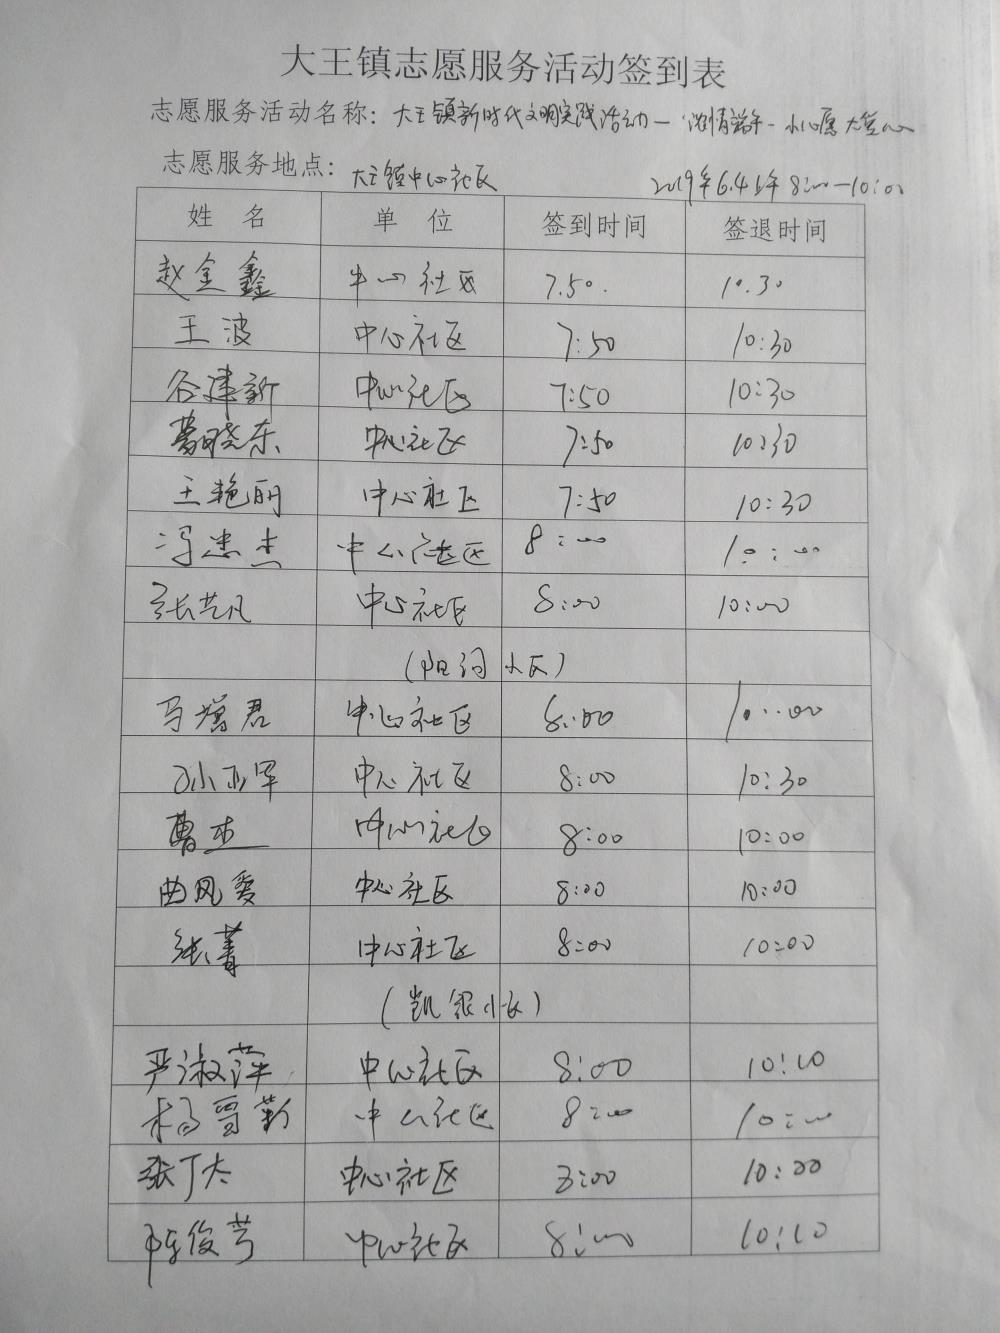 大王镇志愿服务活动签到表
志愿服务活动名称：大王镇新时代文明实践活动—浓情端午-小心愿大爱心
志愿服务地点：大王镇中心社区 2019年6.4 8:00—10:00
姓 名 单 位 签到时间 签退时间
赵金鑫 中心社区 7.50. 10.30
王波 中心社区 7:50 10:30
谷建新 中心社区 7:50 10:30
晓东 中心社区 7:50 10:30
王艳丽 中心社区 7:50 10:30
冯忠杰 中心社区 8:00 10:00
张艺凡 中心社区 8:00 10:00
(阳河小区)
马君 中心社区 8:00 10:00
孙军 中心社区 8:00 10:30
曹杰 中心社区 8:00 10:00
曲风爱 中心社区 8:00 10:00
张菁 中心社区 8:00 10:00
(凯银小区)
严淑萍 中心社区 8:00 10:10
杨勤 中心社区 8:00 10:00
张丁太 中心社区 8:00 10:00
陈俊芳 中心社区 8:00 10:10